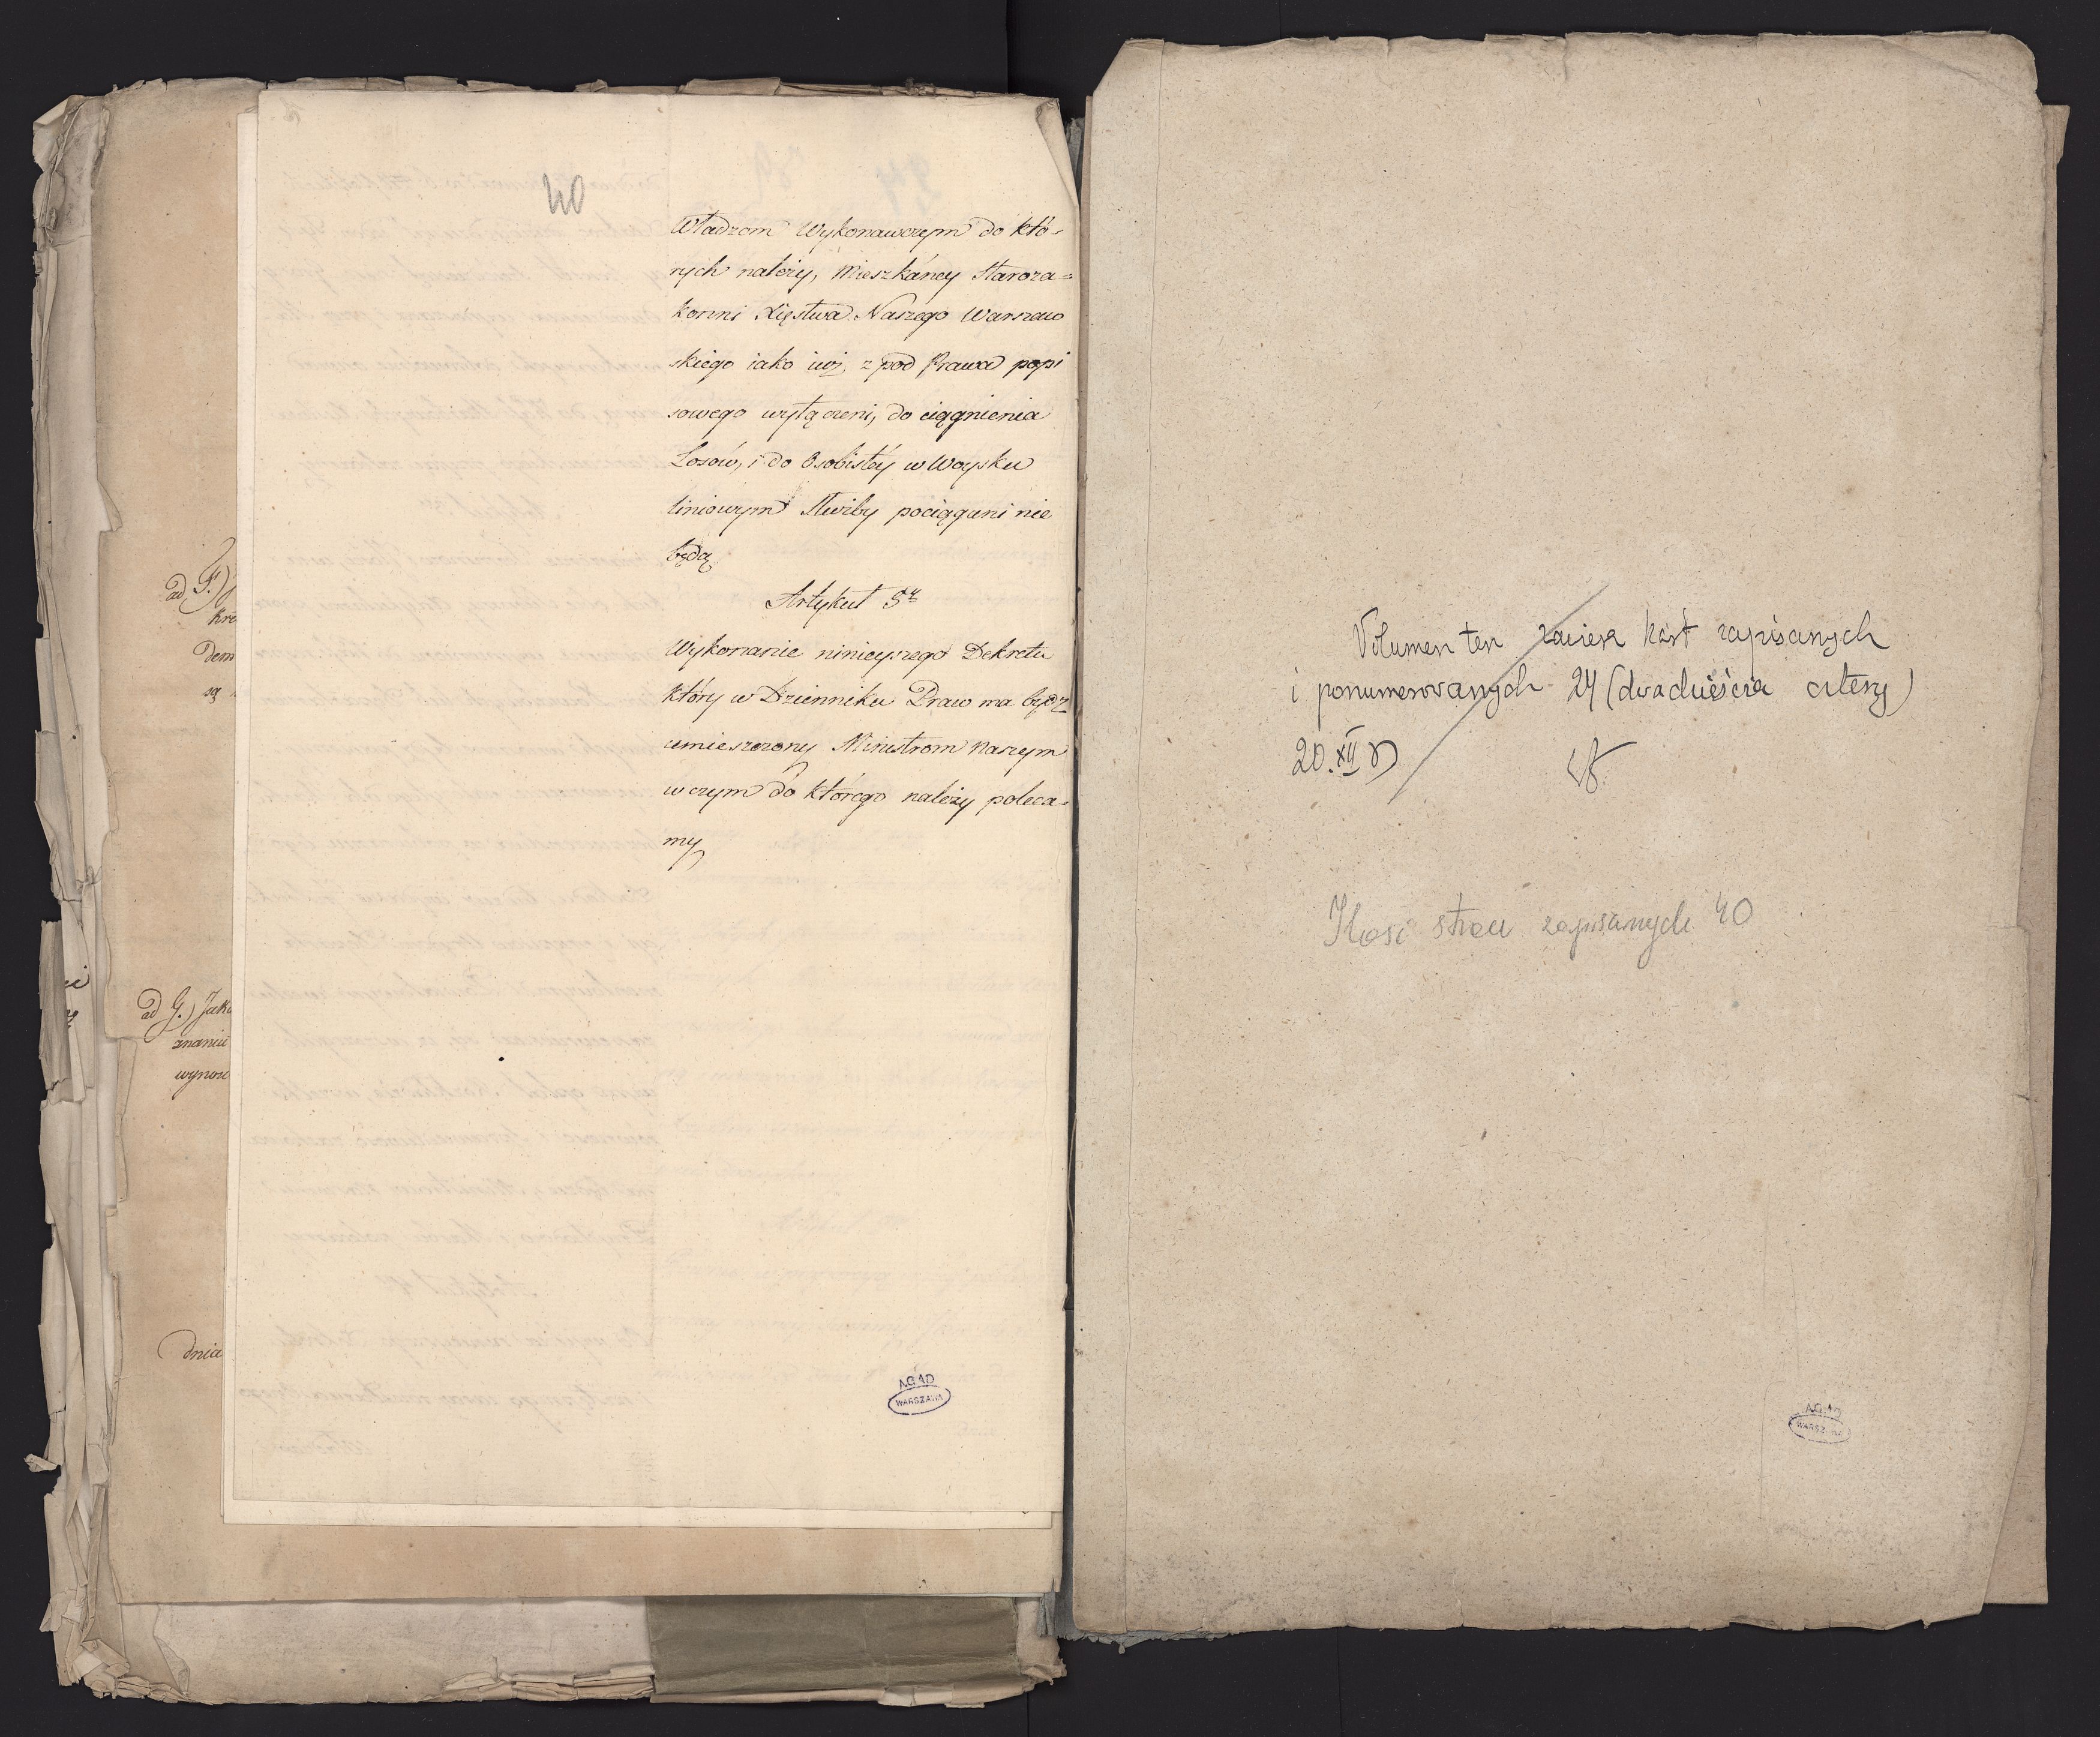 40
Władzom Wykonawczym do któ-
rych należy, Mieszkańcy Staroza=
konni Xięstwa Naszego Warszaw
skiego iako iuż z pod Prawa popi
sowego wyłączeni, do ciągnienia
Losów, i do Osobistéy w Woysku
liniowym Służby pociągani nie
będą.
Artykuł 5ty
Wykonanie ninieyszego Dekretu
który w Dzienniku Praw ma bydź
umieszczony Ministrom Naszym
w czym do którego należy poleca-
my
AGAD
WARSZAWA
ad F.)
kre
dem
są
ad G.) Jako
znaniu
wynosz
dnia
Volumen ten zawiera kart zapisanych
i ponumerowanych 24 (dwadzieścia cztery)
20.XII
Ilość stron zapisanych 40
AGAD
WARSZAWA